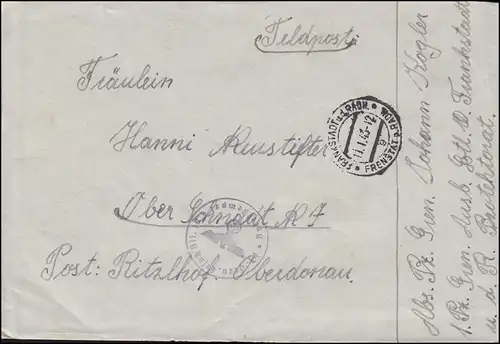 Feldpost.
Fräulein
Hanni Neustifter
Ober Nr 4
Post: Ritzlhof. Oberdonau.
FRANKSTADT a.d. RADH.
11.1.43-12
9
FRENŠTÁT p. RADH.
Abs. Pz. Gren. Johann Kogler
1. Pz. Gren. Ausb. Btl. Frankstadt
u. d. R. Protektorat.